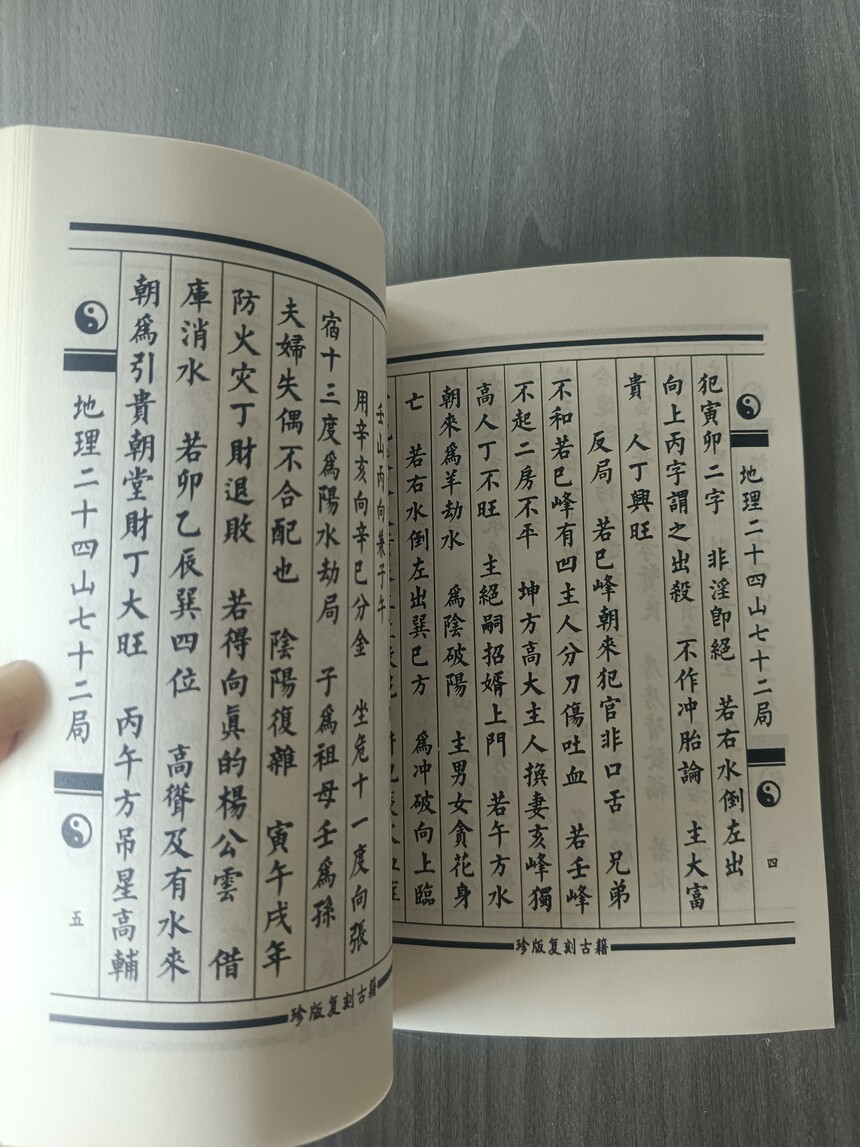 地理二十四山七十二局
四
犯寅卯二字 非淫卽絕 若右水倒左出
向上丙字謂之出殺 不作冲胎論 主大富
貴 人丁興旺
反局 若巳峰朝來犯官非口舌 兄弟
不和若巳峰有凹主人分刀傷吐血 若壬峰
不起二房不平 坤方高大主人換妻亥峰獨
高人丁不旺 主絕嗣招婿上門 若午方水
朝來爲羊劫水 爲陰破陽 主男女貪花身
亡 若右水倒左出巽巳方 爲冲破向上臨
珍版复刻古籍
壬山丙向兼子午
用辛亥向辛巳分金 坐危十一度向張
宿十三度爲陽水劫局 子爲祖母壬爲孫
夫婦失偶不合配也 陰陽復雜 寅午戌年
防火灾丁財退敗 若得向眞的楊公雲 借
庫消水 若卯乙辰巽四位 高聳及有水來
朝爲引貴朝堂財丁大旺 丙午方吊星高輔
地理二十四山七十二局
五
珍版复刻古籍